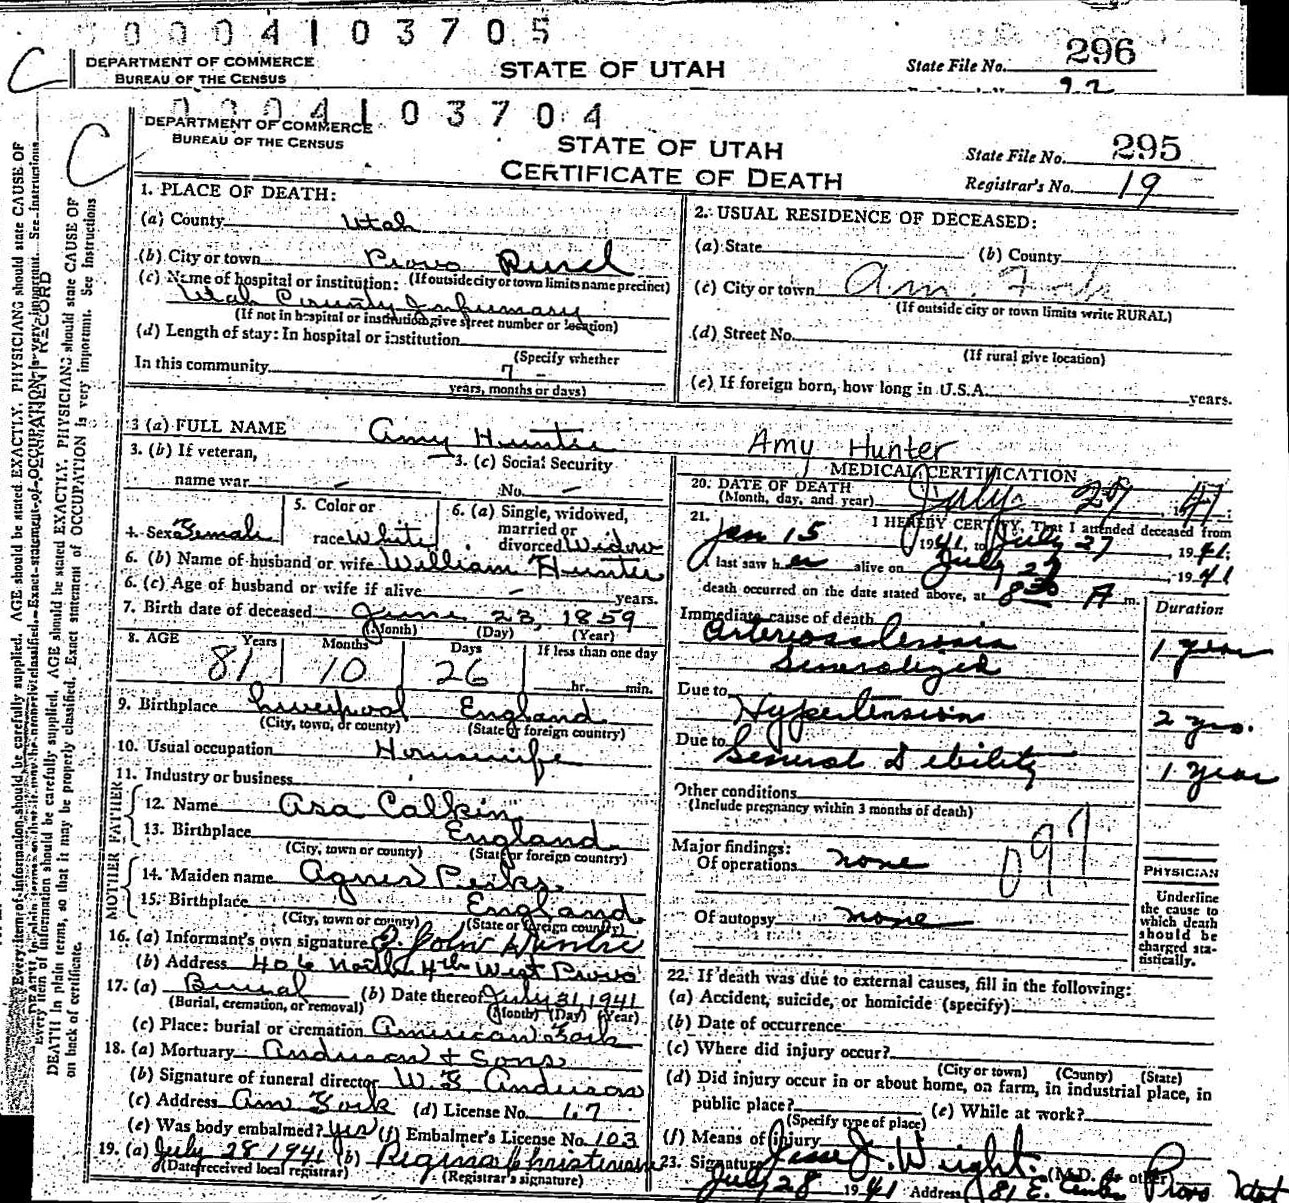 0004103705
C
DEPARTMENT OF COMMERCE
BUREAU OF THE CENSUS
STATE OF UTAH
State File No. 296
0004103704
C
DEPARTMENT OF COMMERCE
BUREAU OF THE CENSUS
STATE OF UTAH
CERTIFICATE OF DEATH
State File No. 295
Registrar's No. 19
1. PLACE OF DEATH:
(a) County Utah
(b) City or town Provo Rural
(If outside city or town limits name precinct)
(c) Name of hospital or institution:
Utah County Infirmary
(If not in hospital or institution give street number or location)
(d) Length of stay: In hospital or institution
(Specify whether
In this community 7 -
years, months or days)
2. USUAL RESIDENCE OF DECEASED:
(a) State (b) County
(c) City or town Am. Fork
(If outside city or town limits write RURAL)
(d) Street No.
(If rural give location)
(e) If foreign born, how long in U.S.A. years.
3 (a) FULL NAME Amy Hunter Amy Hunter
3. (b) If veteran,
name war -
3. (c) Social Security
No. -
4. Sex Female
5. Color or
race White
6. (a) Single, widowed,
married or
divorced Widow
6. (b) Name of husband or wife William Hunter
6. (c) Age of husband or wife if alive - years.
7. Birth date of deceased June 23, 1859
(Month) (Day) (Year)
8. AGE Years Months Days If less than one day
81 10 26 hr. min.
9. Birthplace Liverpool England
(City, town, or county) (State or foreign country)
10. Usual occupation Housewife
11. Industry or business
FATHER
12. Name Asa Calkin
13. Birthplace England
(City, town or county) (State or foreign country)
MOTHER
14. Maiden name Agnes Perks
15. Birthplace England
(City, town or county) (State or foreign country)
16. (a) Informant's own signature J. John Hunter
(b) Address 406 North 4th West Provo
17. (a) Burial (b) Date thereof July 31, 1941
(Burial, cremation, or removal) (Month) (Day) (Year)
(c) Place: burial or cremation American Fork
18. (a) Mortuary Anderson & Sons
(b) Signature of funeral director W. B. Anderson
(c) Address Am Fork (d) License No. 67
(e) Was body embalmed? Yes (f) Embalmer's License No. 103
19. (a) July 28 1941 (b) Regina Christensen
(Date received local registrar) (Registrar's signature)
MEDICAL CERTIFICATION
20. DATE OF DEATH
(Month, day, and year) July 29, 1941
21. I HEREBY CERTIFY, That I attended deceased from
Jan 15 1941, to July 27, 1941.
I last saw her alive on July 27, 1941
death occurred on the date stated above, at 8:30 A m.
Duration
Immediate cause of death
Arteriosclerosis 1 year
Generalized
Due to Hypertension 2 yrs.
Due to General Debility 1 year
Other conditions
(Include pregnancy within 3 months of death)
Major findings:
Of operations none
097
Of autopsy none
PHYSICIAN
Underline
the cause to
which death
should be
charged sta-
tistically.
22. If death was due to external causes, fill in the following:
(a) Accident, suicide, or homicide (specify)
(b) Date of occurrence
(c) Where did injury occur?
(City or town) (County) (State)
(d) Did injury occur in or about home, on farm, in industrial place, in
public place?
(Specify type of place)
(e) While at work?
(f) Means of injury
23. Signature Jesse J. Weight (M.D. or other)
July 28 1941 Address 81 E. Center Provo Utah
Every item of information should be carefully supplied. AGE should be stated EXACTLY. PHYSICIANS should state CAUSE OF
DEATH in plain terms, so that it may be properly classified. Exact statement of OCCUPATION is very important. See Instructions
on back of certificate.